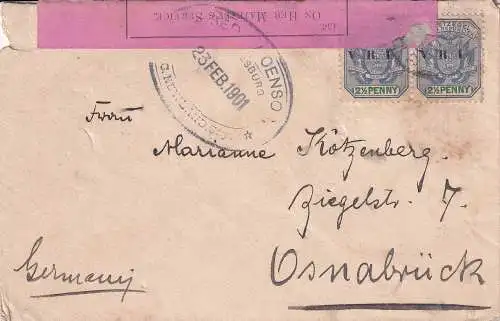 ON HER MAJESTY'S SERVICE.
V. R. I. V. R. I.
2½ PENNY 2½ PENNY
23 FEB. 1901
Frau
Marianne Kötzenberg.
Ziegelstr. 7.
Osnabrück
Germany